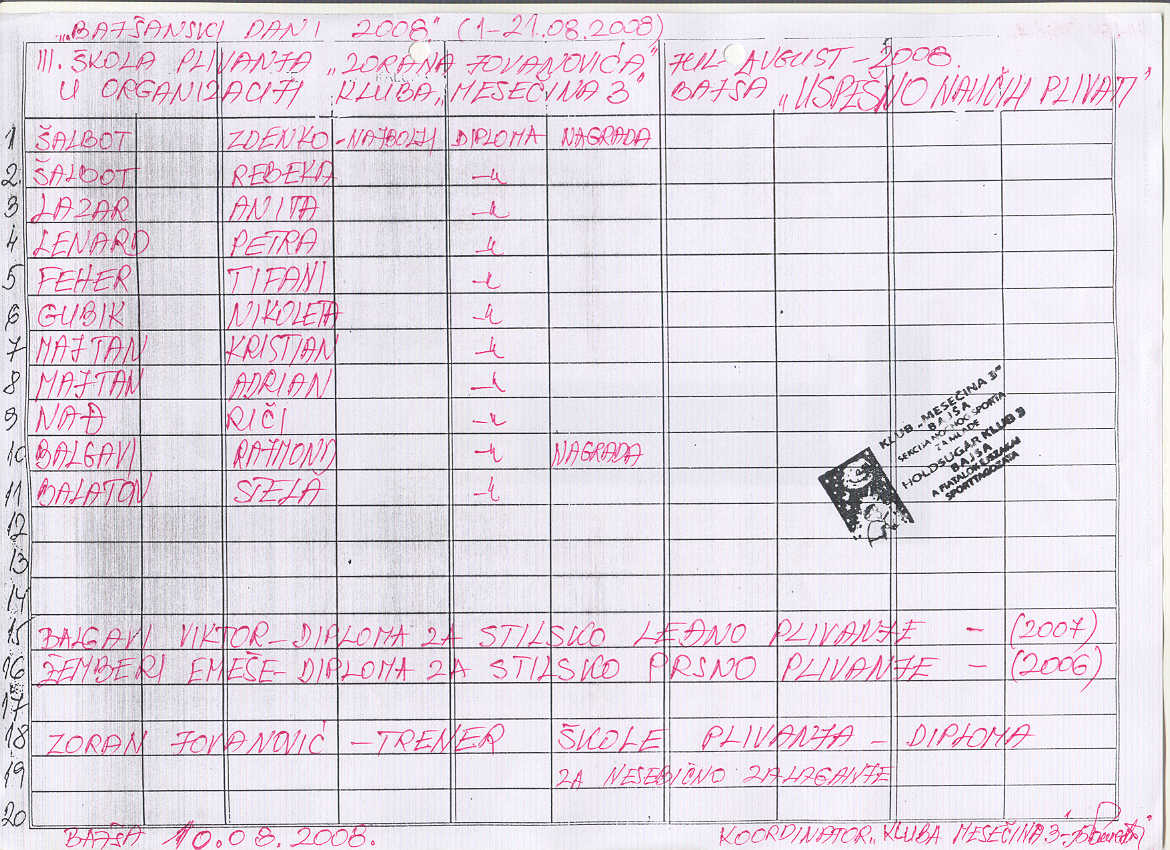 „BAJŠANSKI DANI 2008." (1-21.08.2008)
III. ŠKOLA PLIVANJA „ZORANA JOVANOVIĆA" JUL-AVGUST-2008.
U ORGANIZACIJI KLUBA „MESEČINA 3" BAJŠA „USPEŠNO NAUČILI PLIVATI"
1 ŠALBOT ZDENKO -NAJBOLJI DIPLOMA NAGRADA
2. ŠALBOT REBEKA -||-
3 LAZAR ANITA -||-
4 LENARD PETRA -||-
5 FEHER TIFANI -||-
6 GUBIK NIKOLETA -||-
7 MAJTAN KRISTIAN -||-
8 MAJTAN ADRIAN -||-
9 NAĐ RIČI -||-
10 BALGAVI RAJMOND -||- NAGRADA
11 BALATON STELA -||-
KLUB „MESEČINA 3"
BAJŠA
SEKCIJA NOĆNOG SPORTA
ZA MLADE
HOLDSUGÁR KLUB 3
BAJSA
A FIATALOK ÉJSZAKAI
SPORTTAGOZATA
12
13
14
15 BALGAVI VIKTOR-DIPLOMA ZA STILSKO LEĐNO PLIVANJE - (2007)
16 ŽEMBERI EMEŠE-DIPLOMA ZA STILSKO PRSNO PLIVANJE - (2006)
17
18 ZORAN JOVANOVIĆ -TRENER ŠKOLE PLIVANJA - DIPLOMA
19 ZA NESEBIČNO ZALAGANJE
20
BAJŠA 10.08.2008. KOORDINATOR „KLUBA MESEČINA 3"-